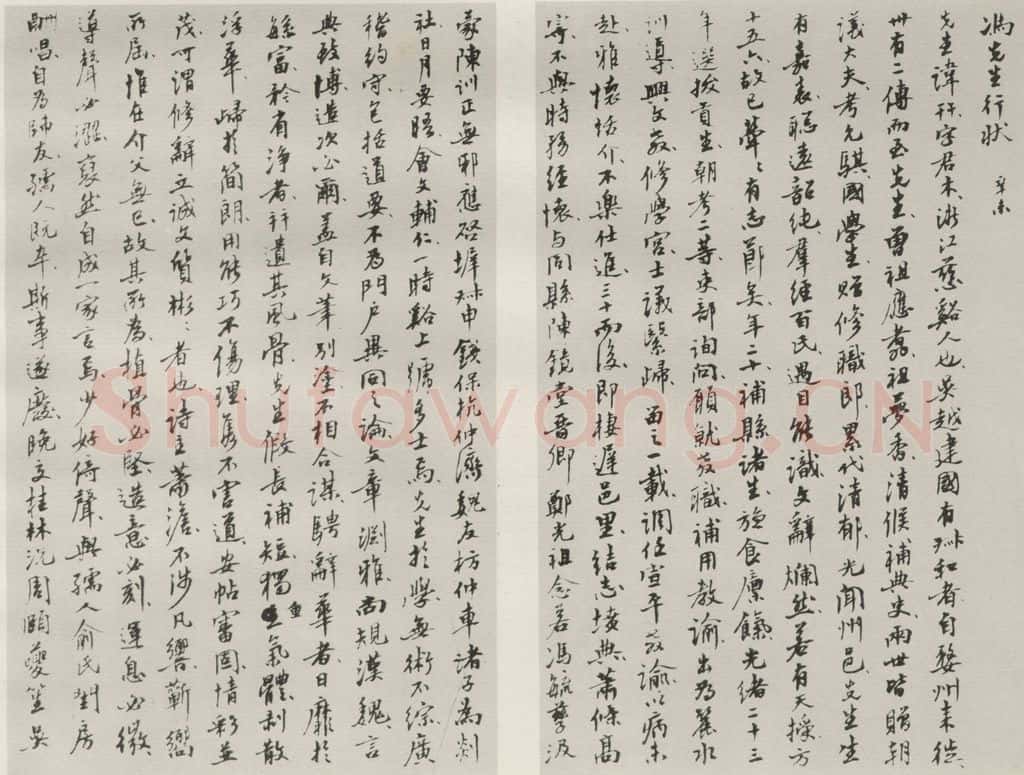 馮先生行狀 辛未
先生諱幵字君木浙江慈谿人也吳越建國有叔和者自婺州來徙
卅有二傳而至先生曾祖應翥祖夢香清候補典史兩世皆贈朝
議大夫考允騏國學生贈修職郎累代清郁光聞州邑先生生
有嘉表聰遠韶純羣經百氏過目能識文辭爛然若有天授方
十五六故已犖〻有志節矣年二十補縣諸生旋食廩餼光緒二十三
年選拔貢生朝考二等吏部詢問願就教職補用教諭出為麗水
訓導興文教修學宮士議緊歸面之一載調任宣平教諭以病未
赴雅懷恬介不樂仕進三十而後即棲遲邑里結志墳典蕭條高
寄不與時務經懷與同縣陳鏡堂晉卿鄭光祖念若馮毓孽汲
蒙陳訓正無邪應啓墀叔申錢保杭仲濟魏友枋仲車諸子為剡
社日月要晤會文輔仁一時谿上彌多士焉先生於學無術不綜廣
稽約守包括道要不為門戶異同之論文章淵雅尚規漢魏言
典致博造次必爾蓋自文筆別塗不相合謀騁辭華者日靡於
繇富矜省淨者幷遺其風骨先生假長補短獨重氣體利散
浮華歸於簡朗用能巧不傷理雋不害道安帖審固情彩並
茂可謂修辭立誠文質彬〻者也詩主蕭澹不涉凡響蘄嚮
所屆惟在介父無已故其所為植骨必堅造意必刻運息必微
導聲必澀裒然自成一家言焉少好倚聲與孺人俞氏對房
酬唱自為師友孺人既卒斯事遂廢晚交桂林況周頤夔笙吳
Shufawang.CN